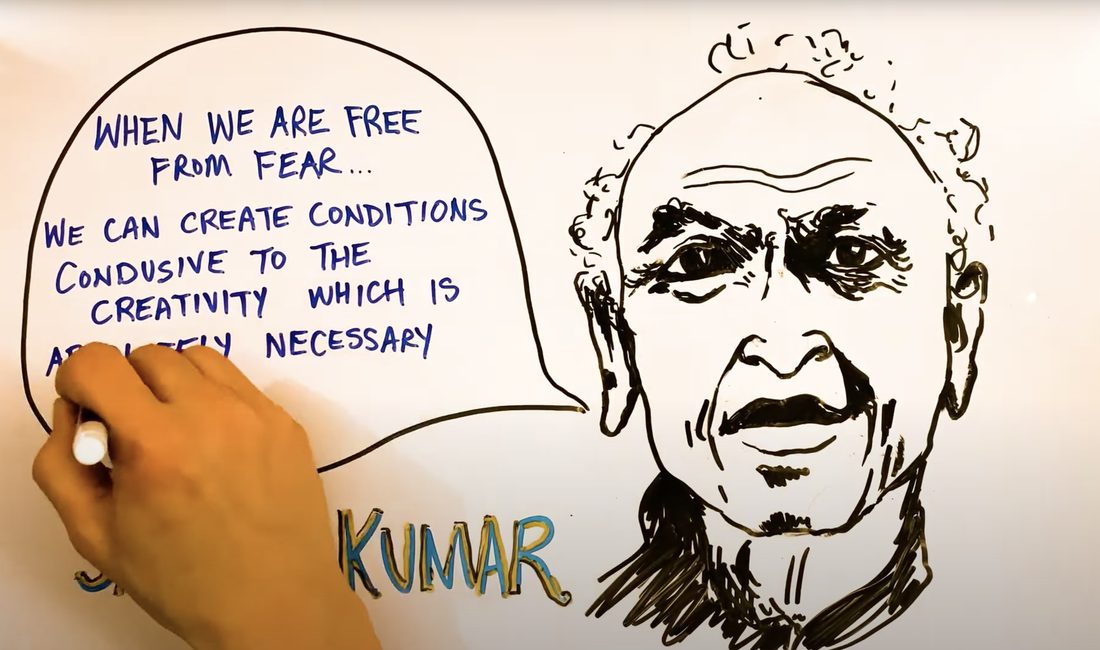 WHEN WE ARE FREE
FROM FEAR...
WE CAN CREATE CONDITIONS
CONDUSIVE TO THE
CREATIVITY WHICH IS
NECESSARY
KUMAR